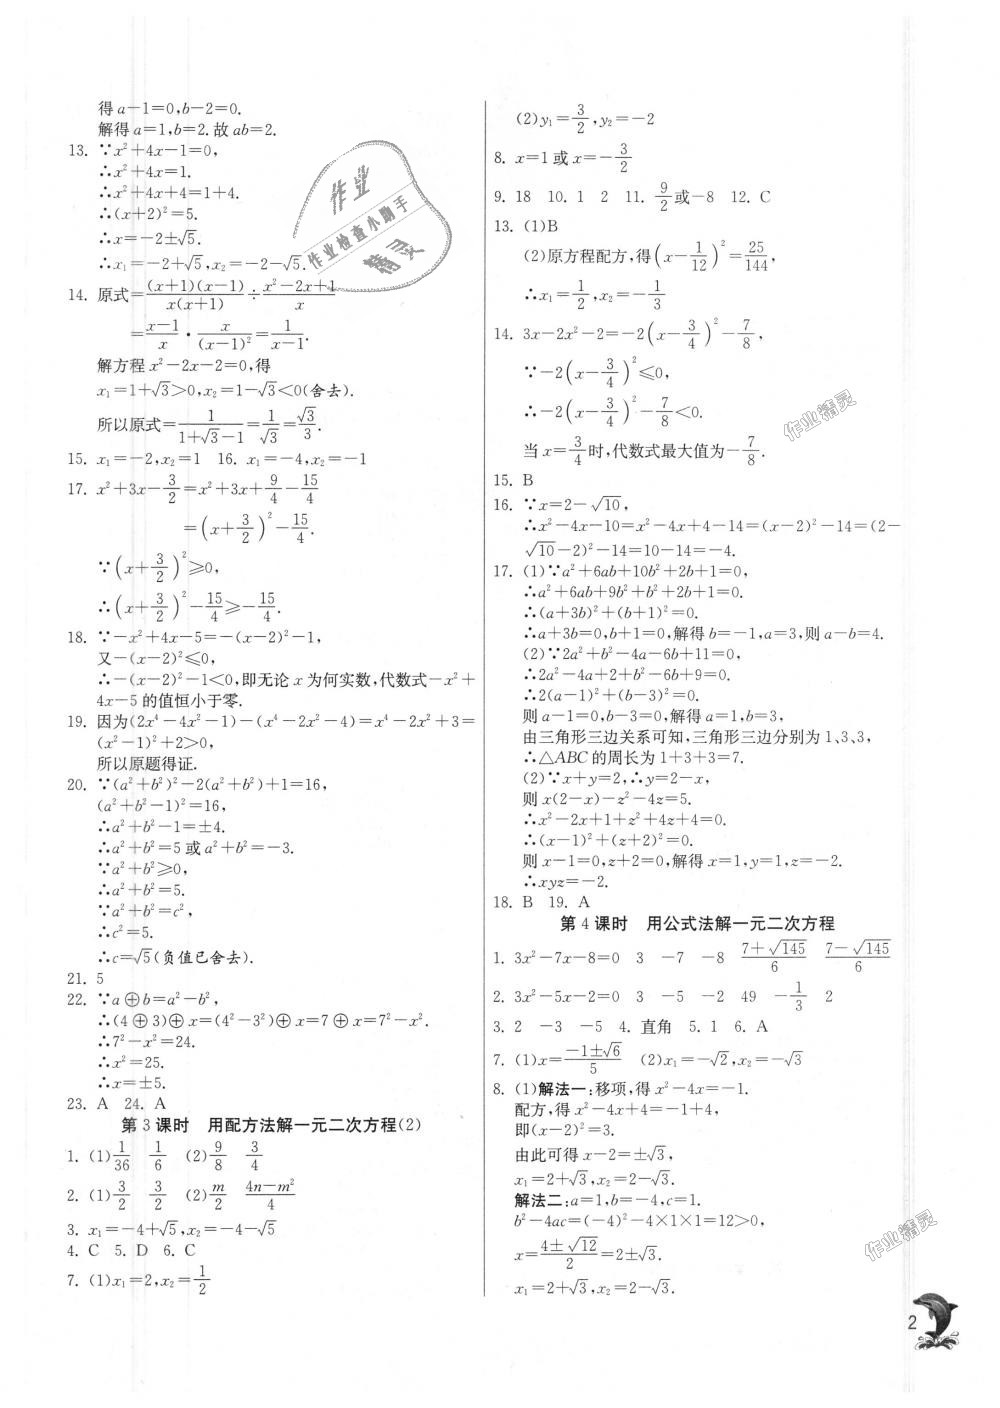 得a−1=0,b−2=0.
解得a=1,b=2.故ab=2.
13. ∵x²+4x−1=0,
∴x²+4x=1.
∴x²+4x+4=1+4.
∴(x+2)²=5.
∴x=−2±√5.
∴x₁=−2+√5,x₂=−2−√5.
14. 原式=(x+1)(x−1)/x(x+1)÷(x²−2x+1)/x
=(x−1)/x·x/(x−1)²=1/(x−1).
解方程x²−2x−2=0,得
x₁=1+√3>0,x₂=1−√3<0(舍去).
所以原式=1/(1+√3−1)=1/√3=√3/3.
15. x₁=−2,x₂=1 16. x₁=−4,x₂=−1
17. x²+3x−3/2=x²+3x+9/4−15/4
=(x+3/2)²−15/4.
∵(x+3/2)²≥0,
∴(x+3/2)²−15/4≥−15/4.
18. ∵−x²+4x−5=−(x−2)²−1,
又−(x−2)²≤0,
∴−(x−2)²−1<0,即无论x为何实数,代数式−x²+
4x−5的值恒小于零.
19. 因为(2x⁴−4x²−1)−(x⁴−2x²−4)=x⁴−2x²+3=
(x²−1)²+2>0,
所以原题得证.
20. ∵(a²+b²)²−2(a²+b²)+1=16,
(a²+b²−1)²=16,
∴a²+b²−1=±4.
∴a²+b²=5或a²+b²=−3.
∵a²+b²≥0,
∴a²+b²=5.
∵a²+b²=c²,
∴c²=5.
∴c=√5(负值已舍去).
21. 5
22. ∵a⊕b=a²−b²,
∴(4⊕3)⊕x=(4²−3²)⊕x=7⊕x=7²−x².
∴7²−x²=24.
∴x²=25.
∴x=±5.
23. A 24. A
第3课时 用配方法解一元二次方程(2)
1. (1)1/36 1/6 (2)9/8 3/4
2. (1)3/2 3/2 (2)m/2 (4n−m²)/4
3. x₁=−4+√5,x₂=−4−√5
4. C 5. D 6. C
7. (1)x₁=2,x₂=1/2
(2)y₁=3/2,y₂=−2
8. x=1或x=−3/2
9. 18 10. 1 2 11. 9/2或−8 12. C
13. (1)B
(2)原方程配方,得(x−1/12)²=25/144,
∴x₁=1/2,x₂=−1/3
14. 3x−2x²−2=−2(x−3/4)²−7/8,
∵−2(x−3/4)²≤0,
∴−2(x−3/4)²−7/8<0.
当x=3/4时,代数式最大值为−7/8.
15. B
16. ∵x=2−√10,
∴x²−4x−10=x²−4x+4−14=(x−2)²−14=(2−
√10−2)²−14=10−14=−4.
17. (1)∵a²+6ab+10b²+2b+1=0,
∴a²+6ab+9b²+b²+2b+1=0.
∴(a+3b)²+(b+1)²=0.
∴a+3b=0,b+1=0,解得b=−1,a=3,则a−b=4.
(2)∵2a²+b²−4a−6b+11=0,
∴2a²−4a+2+b²−6b+9=0.
∴2(a−1)²+(b−3)²=0.
则a−1=0,b−3=0,解得a=1,b=3,
由三角形三边关系可知,三角形三边分别为1、3、3,
∴△ABC的周长为1+3+3=7.
(2)∵x+y=2,∴y=2−x,
则x(2−x)−z²−4z=5.
∴x²−2x+1+z²+4z+4=0.
∴(x−1)²+(z+2)²=0.
则x−1=0,z+2=0,解得x=1,y=1,z=−2.
∴xyz=−2.
18. B 19. A
第4课时 用公式法解一元二次方程
1. 3x²−7x−8=0 3 −7 −8 (7+√145)/6 (7−√145)/6
2. 3x²−5x−2=0 3 −5 −2 49 −1/3 2
3. 2 −3 −5 4. 直角 5. 1 6. A
7. (1)x=(−1±√6)/5 (2)x₁=−√2,x₂=−√3
8. (1)解法一:移项,得x²−4x=−1.
配方,得x²−4x+4=−1+4,
即(x−2)²=3.
由此可得x−2=±√3,
x₁=2+√3,x₂=2−√3.
解法二:a=1,b=−4,c=1.
b²−4ac=(−4)²−4×1×1=12>0,
x=(4±√12)/2=2±√3.
x₁=2+√3,x₂=2−√3.
2
作业
作业检查小助手
精灵
作业精灵
作业精灵